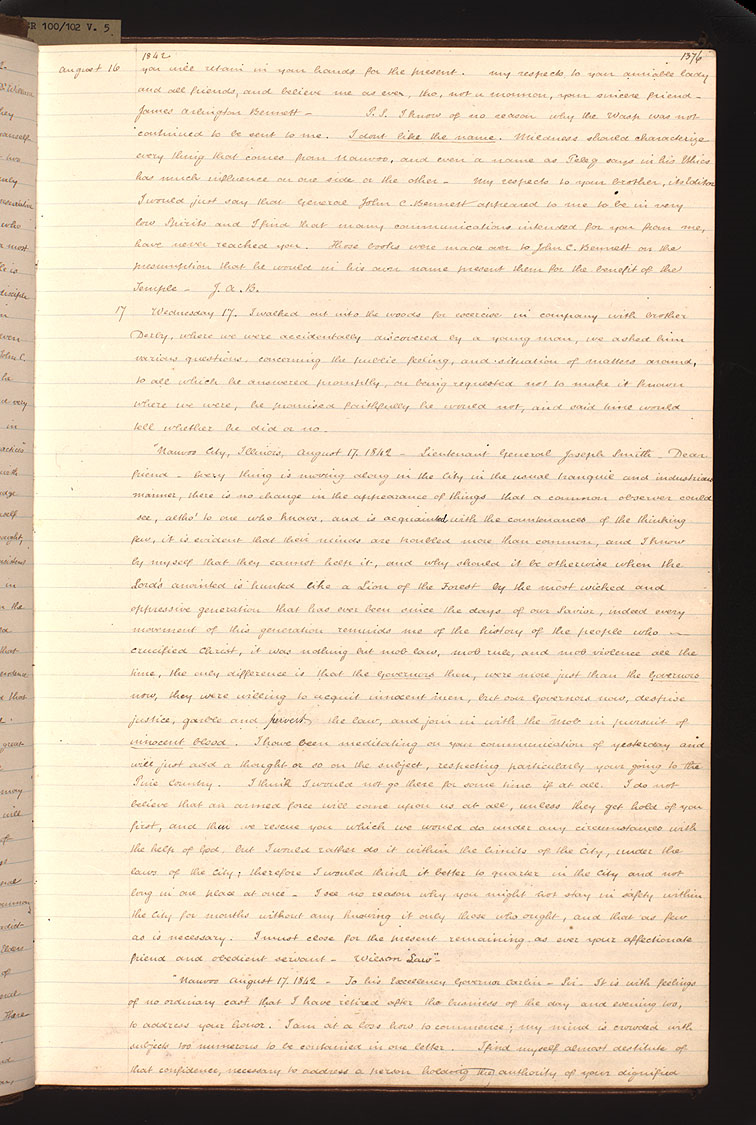 CR 100/102 V. 5
1842
1376
August 16
you will retain in your hands for the present. my respects to your amiable lady
and all friends, and believe me as ever, tho, not a mormon, your sincere friend —
James Arlington Bennett — P.S. I know of no reason why the Wasp was not
continued to be sent to me. I dont like the name. Mildness should characterize
every thing that comes from Nauvoo, and even a name as Paley says in his Ethics
has much influence on one side or the other — My respects to your brother, its Editor
I would just say that General John C. Bennett appeared to me to be in very
low Spirits and I find that many communications intended for you from me,
have never reached you. Those books were made over to John C. Bennett on the
presumption that he would in his own name present them for the benefit of the
Temple — J. A. B.
17 Wednesday 17. I walked out into the woods for exercise in company with brother
Derby, where we were accidentally discovered by a young man, we asked him
various questions, concerning the public feeling, and situation of matters around,
to all which he answered promptly, on being requested not to make it known
where we were, he promised faithfully he would not, and said time would
tell whether he did or no —
"Nauvoo City, Illinois, August 17. 1842 — Lieutenant General Joseph Smith — Dear
friend — Every thing is moving along in the City in the usual tranquil and industrious
manner, there is no change in the appearance of things that a common observer could
see, altho' to one who knows, and is acquainted with the countenances of the thinking
few, it is evident that their minds are troubled more than common, and I know
by myself that they cannot help it, and why should it be otherwise when the
Lord's anointed is hunted like a Lion of the Forest by the most wicked and
oppressive generation that has ever been since the days of our Savior, indeed every
movement of this generation reminds me of the history of the people who —
crucified Christ, it was nothing but mob law, mob rule, and mob violence all the
time, the only difference is that the Governors then, were more just than the Governors
now, they were willing to acquit innocent men, but our Governors now, despise
justice, garble and pervert the law, and join in with the Mob in pursuit of
innocent blood. I have been meditating on your communication of yesterday and
will just add a thought or so on the subject, respecting particularly your going to the
Pine Country. I think I would not go there for some time if at all. I do not
believe that an armed force will come upon us at all, unless they get hold of you
first, and then we rescue you which we would do under any circumstances with
the help of God, but I would rather do it within the limits of the City, under the
laws of the City; therefore I would think it better to quarter in the City and not
long in one place at once — I see no reason why you might not stay in safety within
the City for months without any knowing it only those who ought, and that as few
as is necessary. I must close for the present remaining as ever your affectionate
friend and obedient servant — Wilson Law" —
"Nauvoo August 17. 1842 — To his Excellency Governor Carlin — Sir — It is with feelings
of no ordinary cast that I have retired after the business of the day and evening too,
to address your honor. I am at a loss how to commence; my mind is crowded with
subjects too numerous to be contained in one letter. I find myself almost destitute of
that confidence, necessary to address a person holding the authority of your dignified